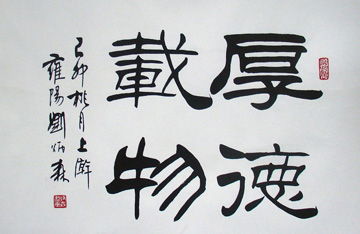 厚德
載物
己卯桃月上澣
雍陽劉炳森